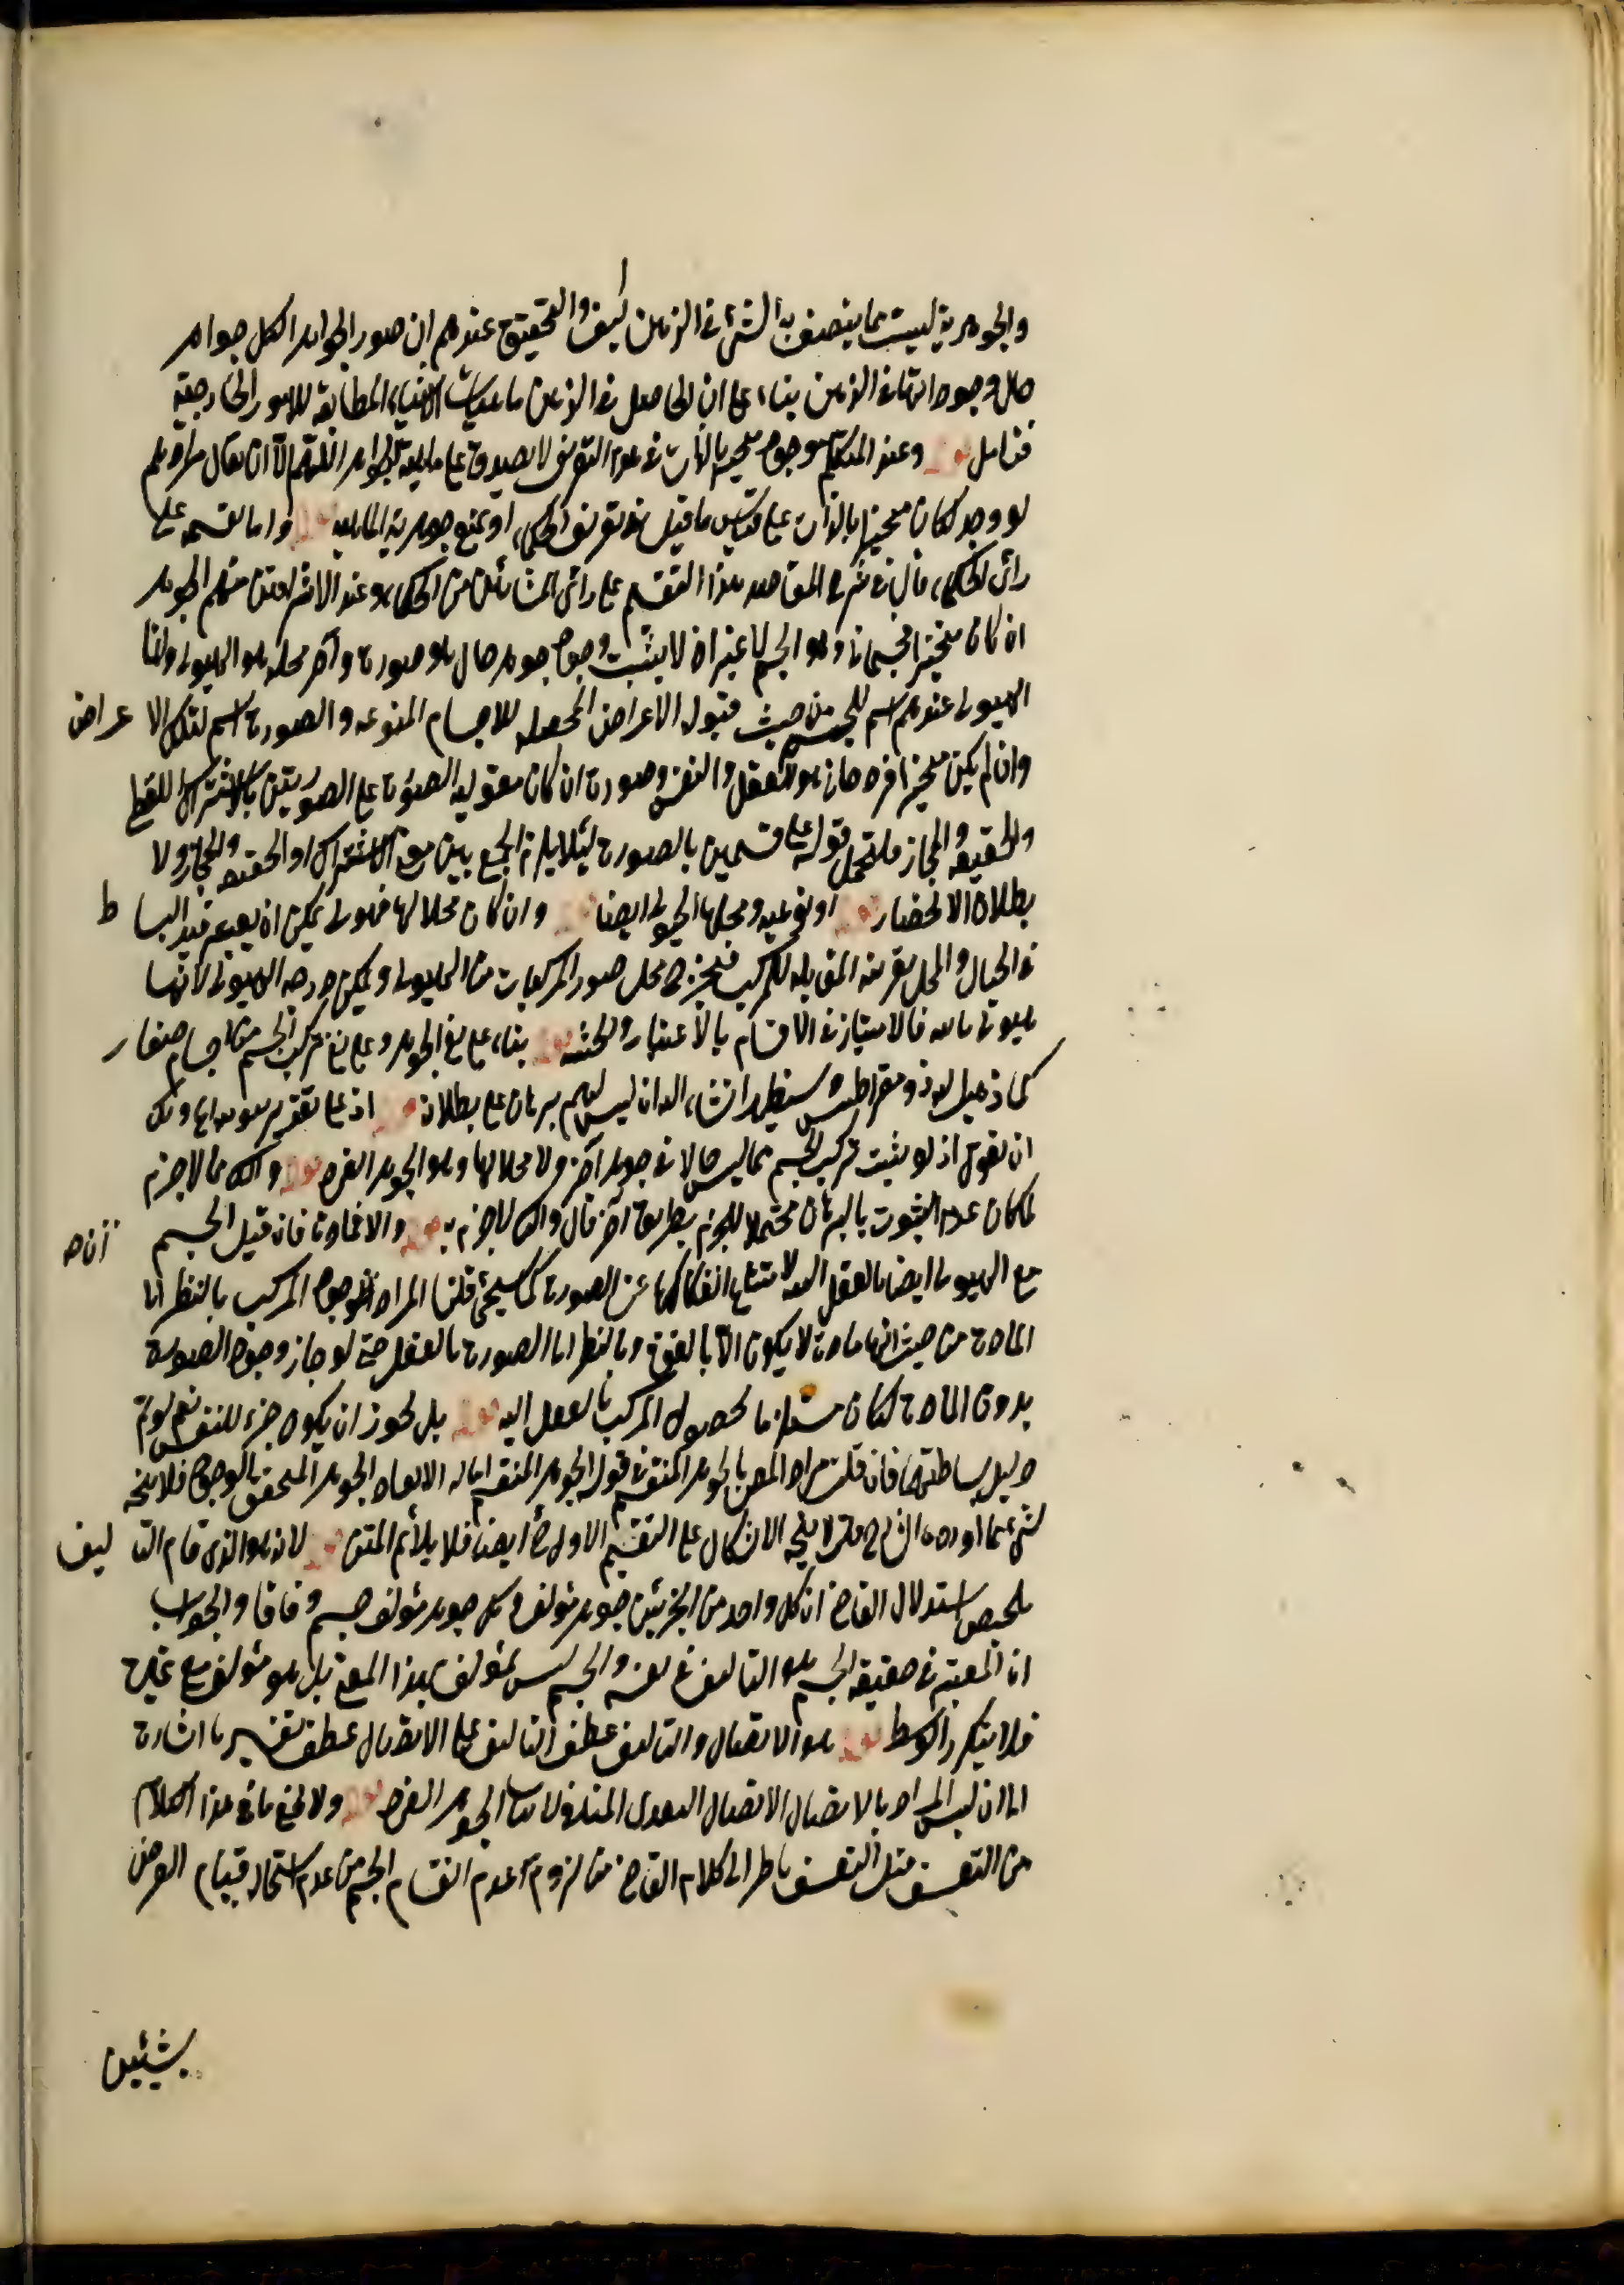 والجوهرية ليست مما يتصف به الشئ في الذهن كيف والتحقيق عندهم ان صور الجواهر الكل جواهر
حال وجوداتها في الذهن بناء على ان الحاصل في الذهن ماهيات الاشياء المطابقة للامور الخارجية
فتامل قوله وعند المتكلم موجود متحيز بالذات في هذا التعريف لا يصدق على ماهية الجواهر اللهم الا ان يقال مرادهم
لو وجد لكان متحيزا بالذات على قياس ما قيل في تعريف الحكماء او يمنع جوهرية الماهية قوله واما تقسيمه على
رأى الحكماء قال في شرح المقاصد هذا التقسيم على رأى المشائين من الحكماء وعند الاشراقيين منهم الجوهر
ان كان متحيزا فجسماني وهو الجسم لا غير اذ لا يثبت وجود جوهر حال هو صورة وآخر محل هو الهيولى وانما
الهيولى عندهم اسم للجسم من حيث قبوله الاعراض المحصله للاجسام المنوعه والصورة اسم لتلك الاعراض
وان لم يكن متحيزا فروحاني هو العقل والنفس قوله وصورة ان كان مقوليه الصورة على الصورتين بالاشتراك اللفظي
والحقيقه والمجاز فليحمل قوله على قسمين بالصورة لئلا يلزم الجمع بين معنى الاشتراك او الحقيقه والمجاز ولا
بطلان الانحصار قوله او نوعيه ومحلها الهيولى ايضا قوله وان كان محلا لها فهيولى يمكن ان يعتبر قيد البساط
في الحال والمحل بقرينه المقابله للمركب فيخرج محل صور المركبات من الهيولى ويمكن درجه الهيولى لانها
هيولى ثانيه فالامتياز في الاقسام بالاعتبار والحيثيه قوله بناء على نفى الجوهر وعلى نفى تركب الجسم من اجسام صغار
كما ذهب اليه ذومقراطيس وسيظهر ان شاء الله ان ليس لهم برهان على بطلانه قوله اذ على تقدير ثبوته لها ولك
ان تقول اذ لو يثبت تركب الجسم مما ليس حالا في جوهر آخر ولا محلا لها وهو الجوهر الفرد قوله واك مما لا جزم
لمكان عدم الثبوت بالبرهان محتملا للجزم بطريق آخر قال واك لا جزم به قوله والا فمادة فان قيل الجسم
مع الهيولى ايضا بالفعل البته لامتناع انفكاكها عن الصورة كما سيجئ قلنا المراد ان وجود المركب بالنظر الى
المادة من حيث انها مادة لا يكون الا بالقوة وبالنظر الى الصورة بالفعل حتى لو جاز وجود الصورة
بدون المادة لكان مستلزما لحصول المركب بالفعل البته قوله بل يجوز ان يكون جزء للنفس نعم لو تم
دليل بساطتها فان قلت مراد المص بالجوهر المنقسم في قوله الجوهر المنقسم اما له الابعاد الجوهر المتحقق بالوجود فلا يتجه
شئ مما اورده الشارح قلت لا يتجه الاشكال على التقسيم الاول ح ايضا فلا يلائم المتن قوله لانه هو الذي قام التاليف
ملخص استدلال القاضى ان كل واحد من الجزئين جوهر مؤلف وكل جوهر مؤلف جسم وفاقا والجواب
ان المعتبر في حقيقه الجسم هو التاليف في نفسه والجسم ليس بمؤلف بهذا المعنى بل هو مؤلف مع غيره
فلا يتكرر الوسط قوله هو الاتصال والتاليف عطف التاليف على الاتصال عطف تفسيرى اشارة
الى ان ليس المراد بالاتصال الاتصال البعدى المنافى لاثبات الجوهر الفرد قوله ولا يخفى ما في هذا الكلام
من التعسف مثل التعسف ناظر الى كلام القاضى من لزوم عدم انقسام الجسم من عدم استحالة قيام العرض
بشيئين